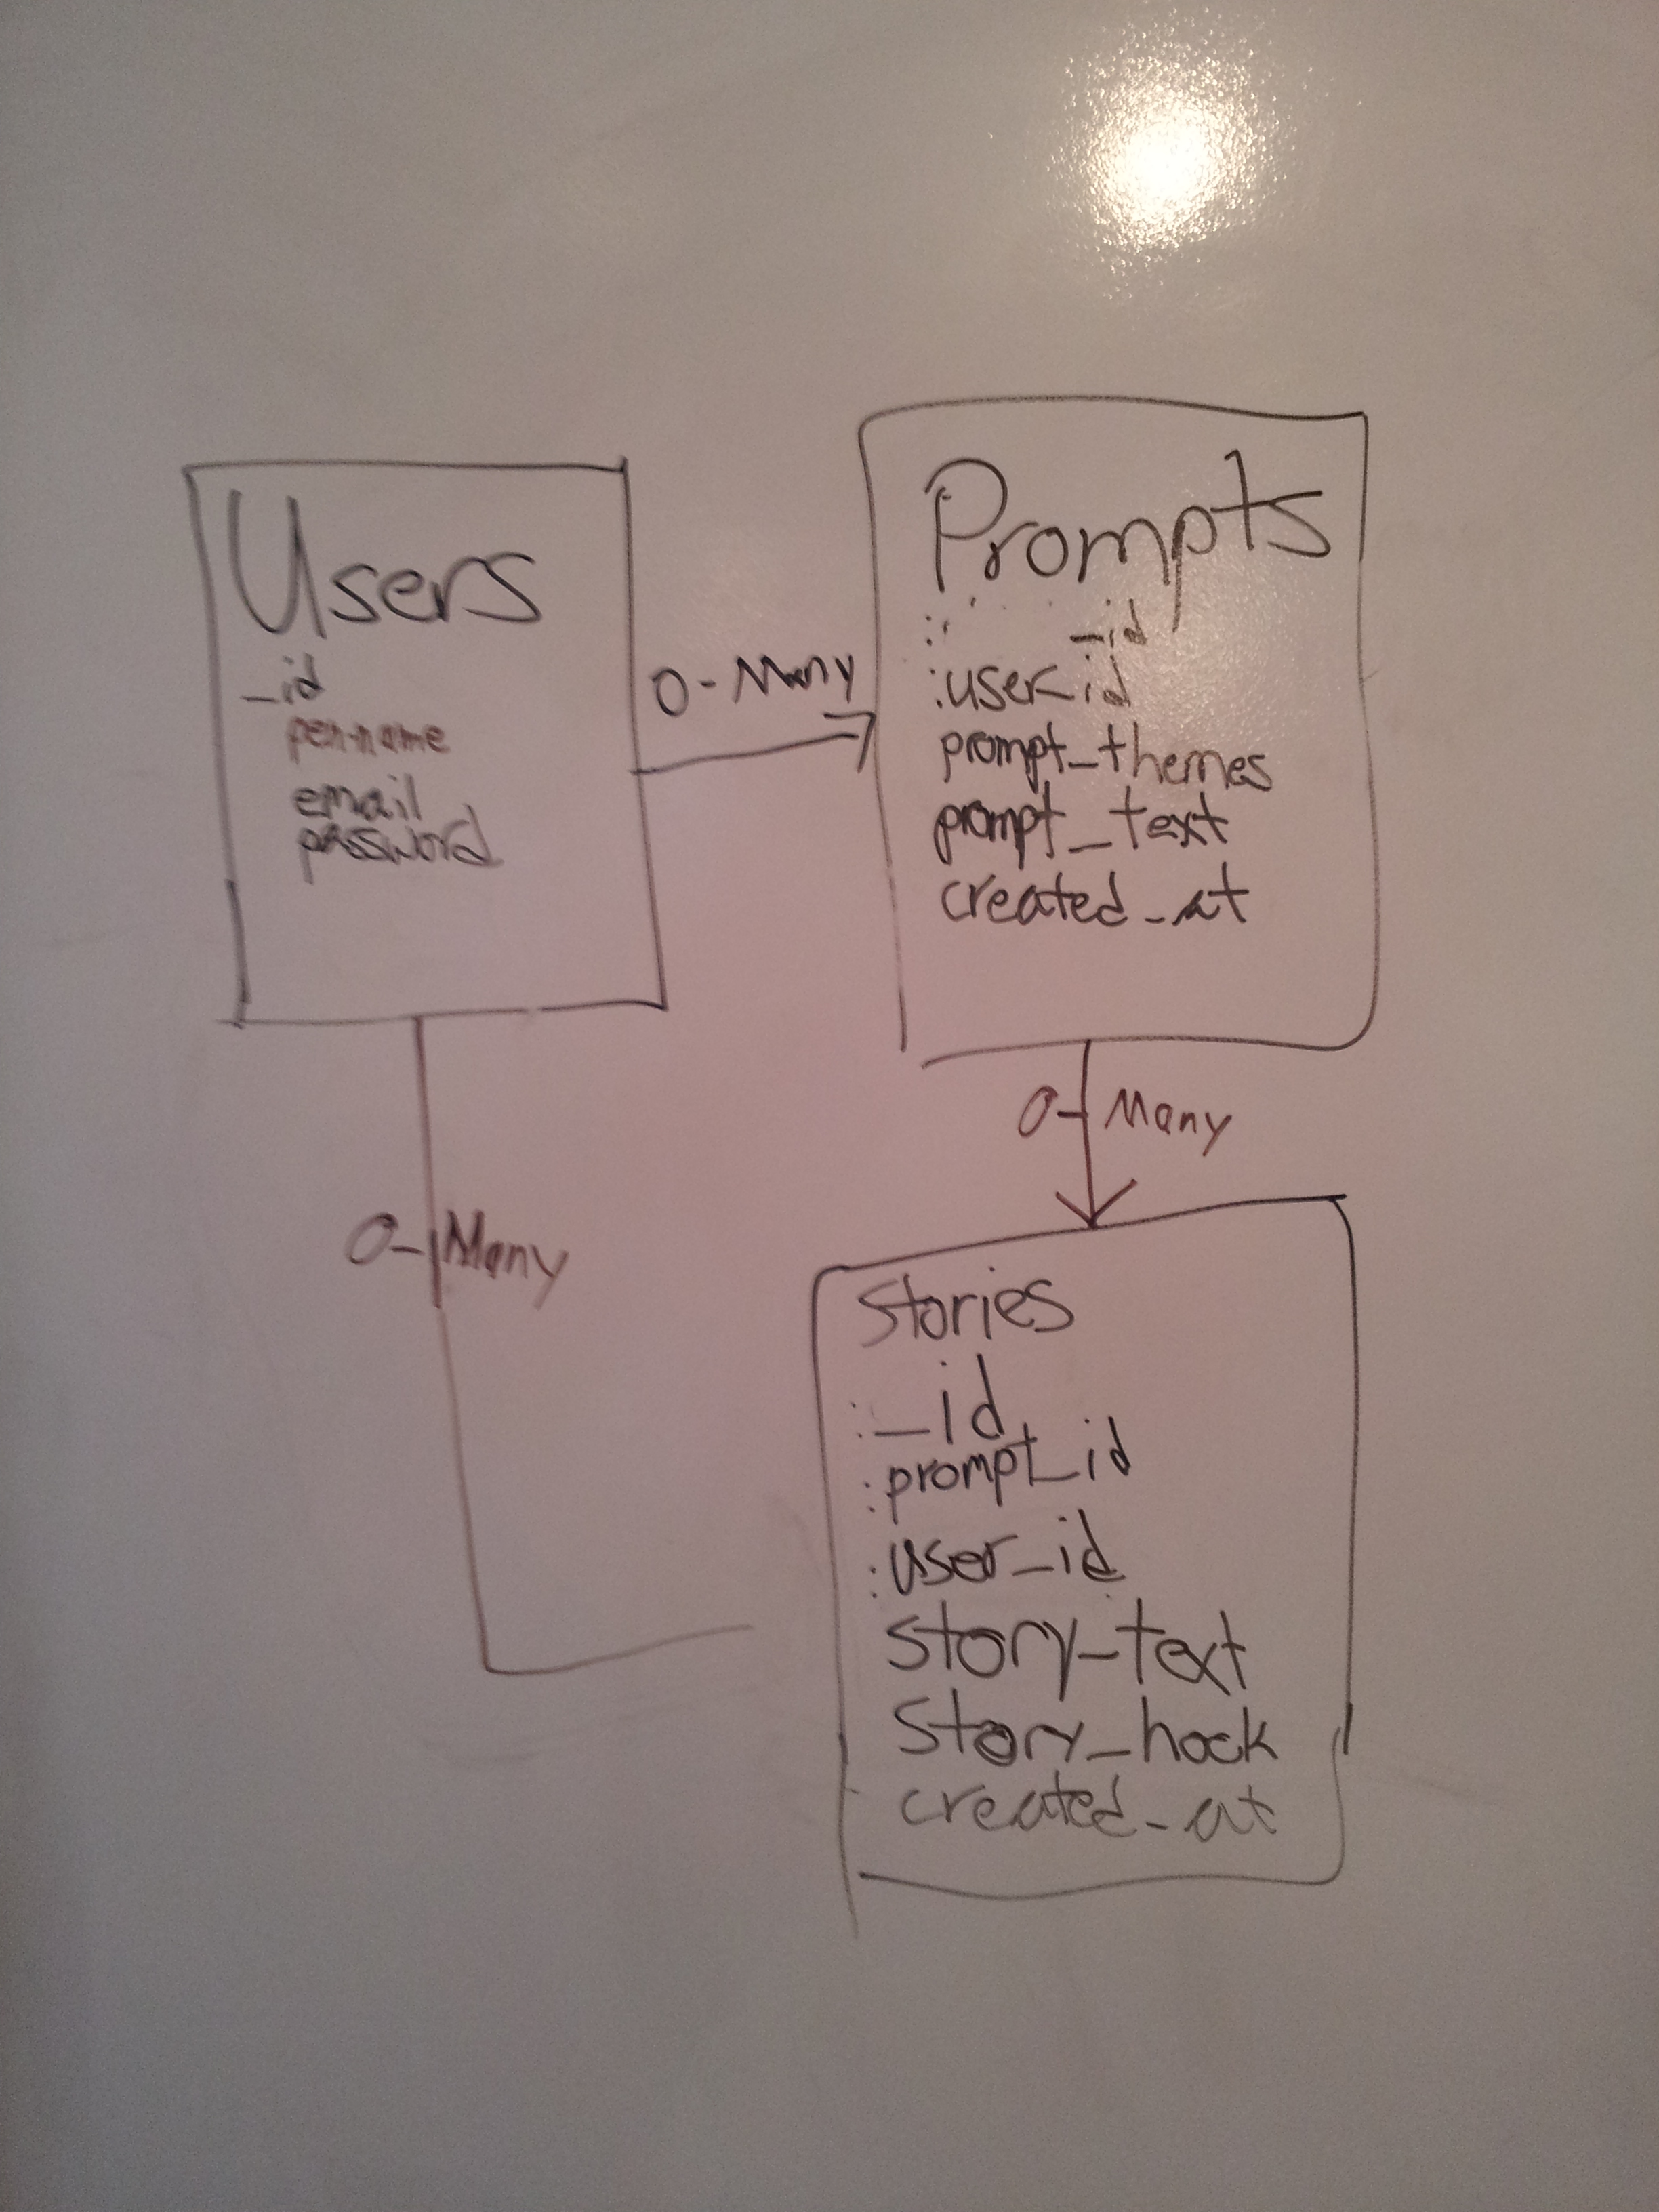 Users
_id
pen-name
email
password
O - Many
Prompts
: _id
:user_id
prompt_themes
prompt_text
created_at
O - Many
O - Many
Stories
:_id
:prompt_id
:user_id
story_text
story_hook
created_at